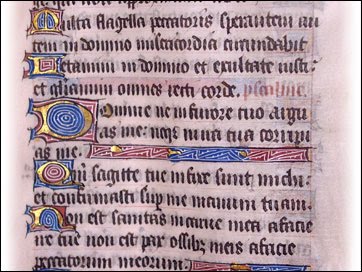 Multa flagella peccatoris sperantem au
tem in domino misericordia circundabit
Letamini in domino et exultate iusti
et gliamini omnes recti corde.
Domine ne in furore tuo argu
as me: neqz in ira tua corripi
as me.
Qm sagitte tue infixe sunt michi
et confirmasti sup me manum tuam.
Non est sanitas in carne mea a facie
ire tue non est pax ossibz meis a facie
peccatorum meorum